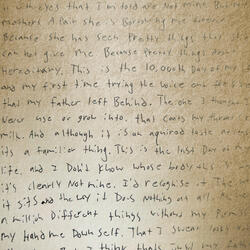 with eyes that I'm told are not mine But
mothers A pair she is Borrowing me
Because she has seen Pretty things that she
can not give me Because Pretty things are
hereditary. This is the 10,000th Day of my
and my first time trying the voice on
that my father left Behind. The one I thought
Never use or grow into. that coats my throat
milk. And although it is an aquired taste
its a familiar thing. This is the last Day of my
life. and I Don't know whose body
it's clearly Not mine. I'd recognise it. The
it sits and the way it Does Nothing at all.
a million Different things without my
my hand me Down self. That I swear
I think that's